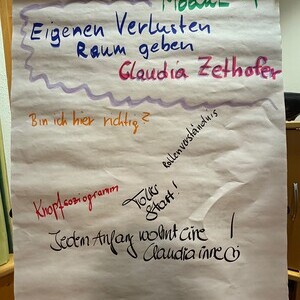 Modul 1
Eigenen Verlusten
Raum geben
Claudia Zethofer
Bin ich hier richtig?
Rollenverständnis
Knopfsoziogramm
Talk
start!
Jedem Anfang wohnt eine
Claudia inne!